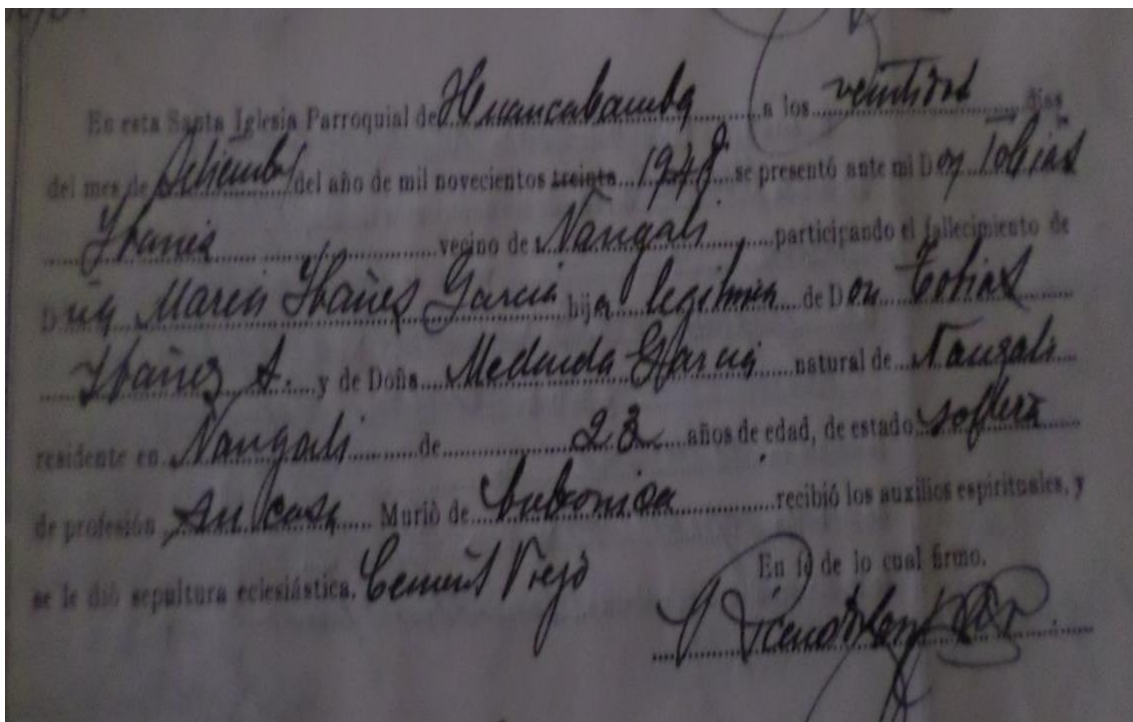 En esta Santa Iglesia Parroquial de Huancabamba a los veintidos días
del mes de Setiembre del año de mil novecientos treinta 1948 se presentó ante mi Don Tobias
Ybañez vecino de Nangali participando el fallecimiento de
Dña Maria Ybañez Garcia hija legitima de Don Tobias
Ybañez A. y de Doña Melinda Garcia natural de Nangali
residente en Nangali de 23 años de edad, de estado soltera
de profesión su casa Murió de bubonica recibió los auxilios espirituales, y
se le dió sepultura eclesiástica. Cement Viejo
En fé de lo cual firmo.